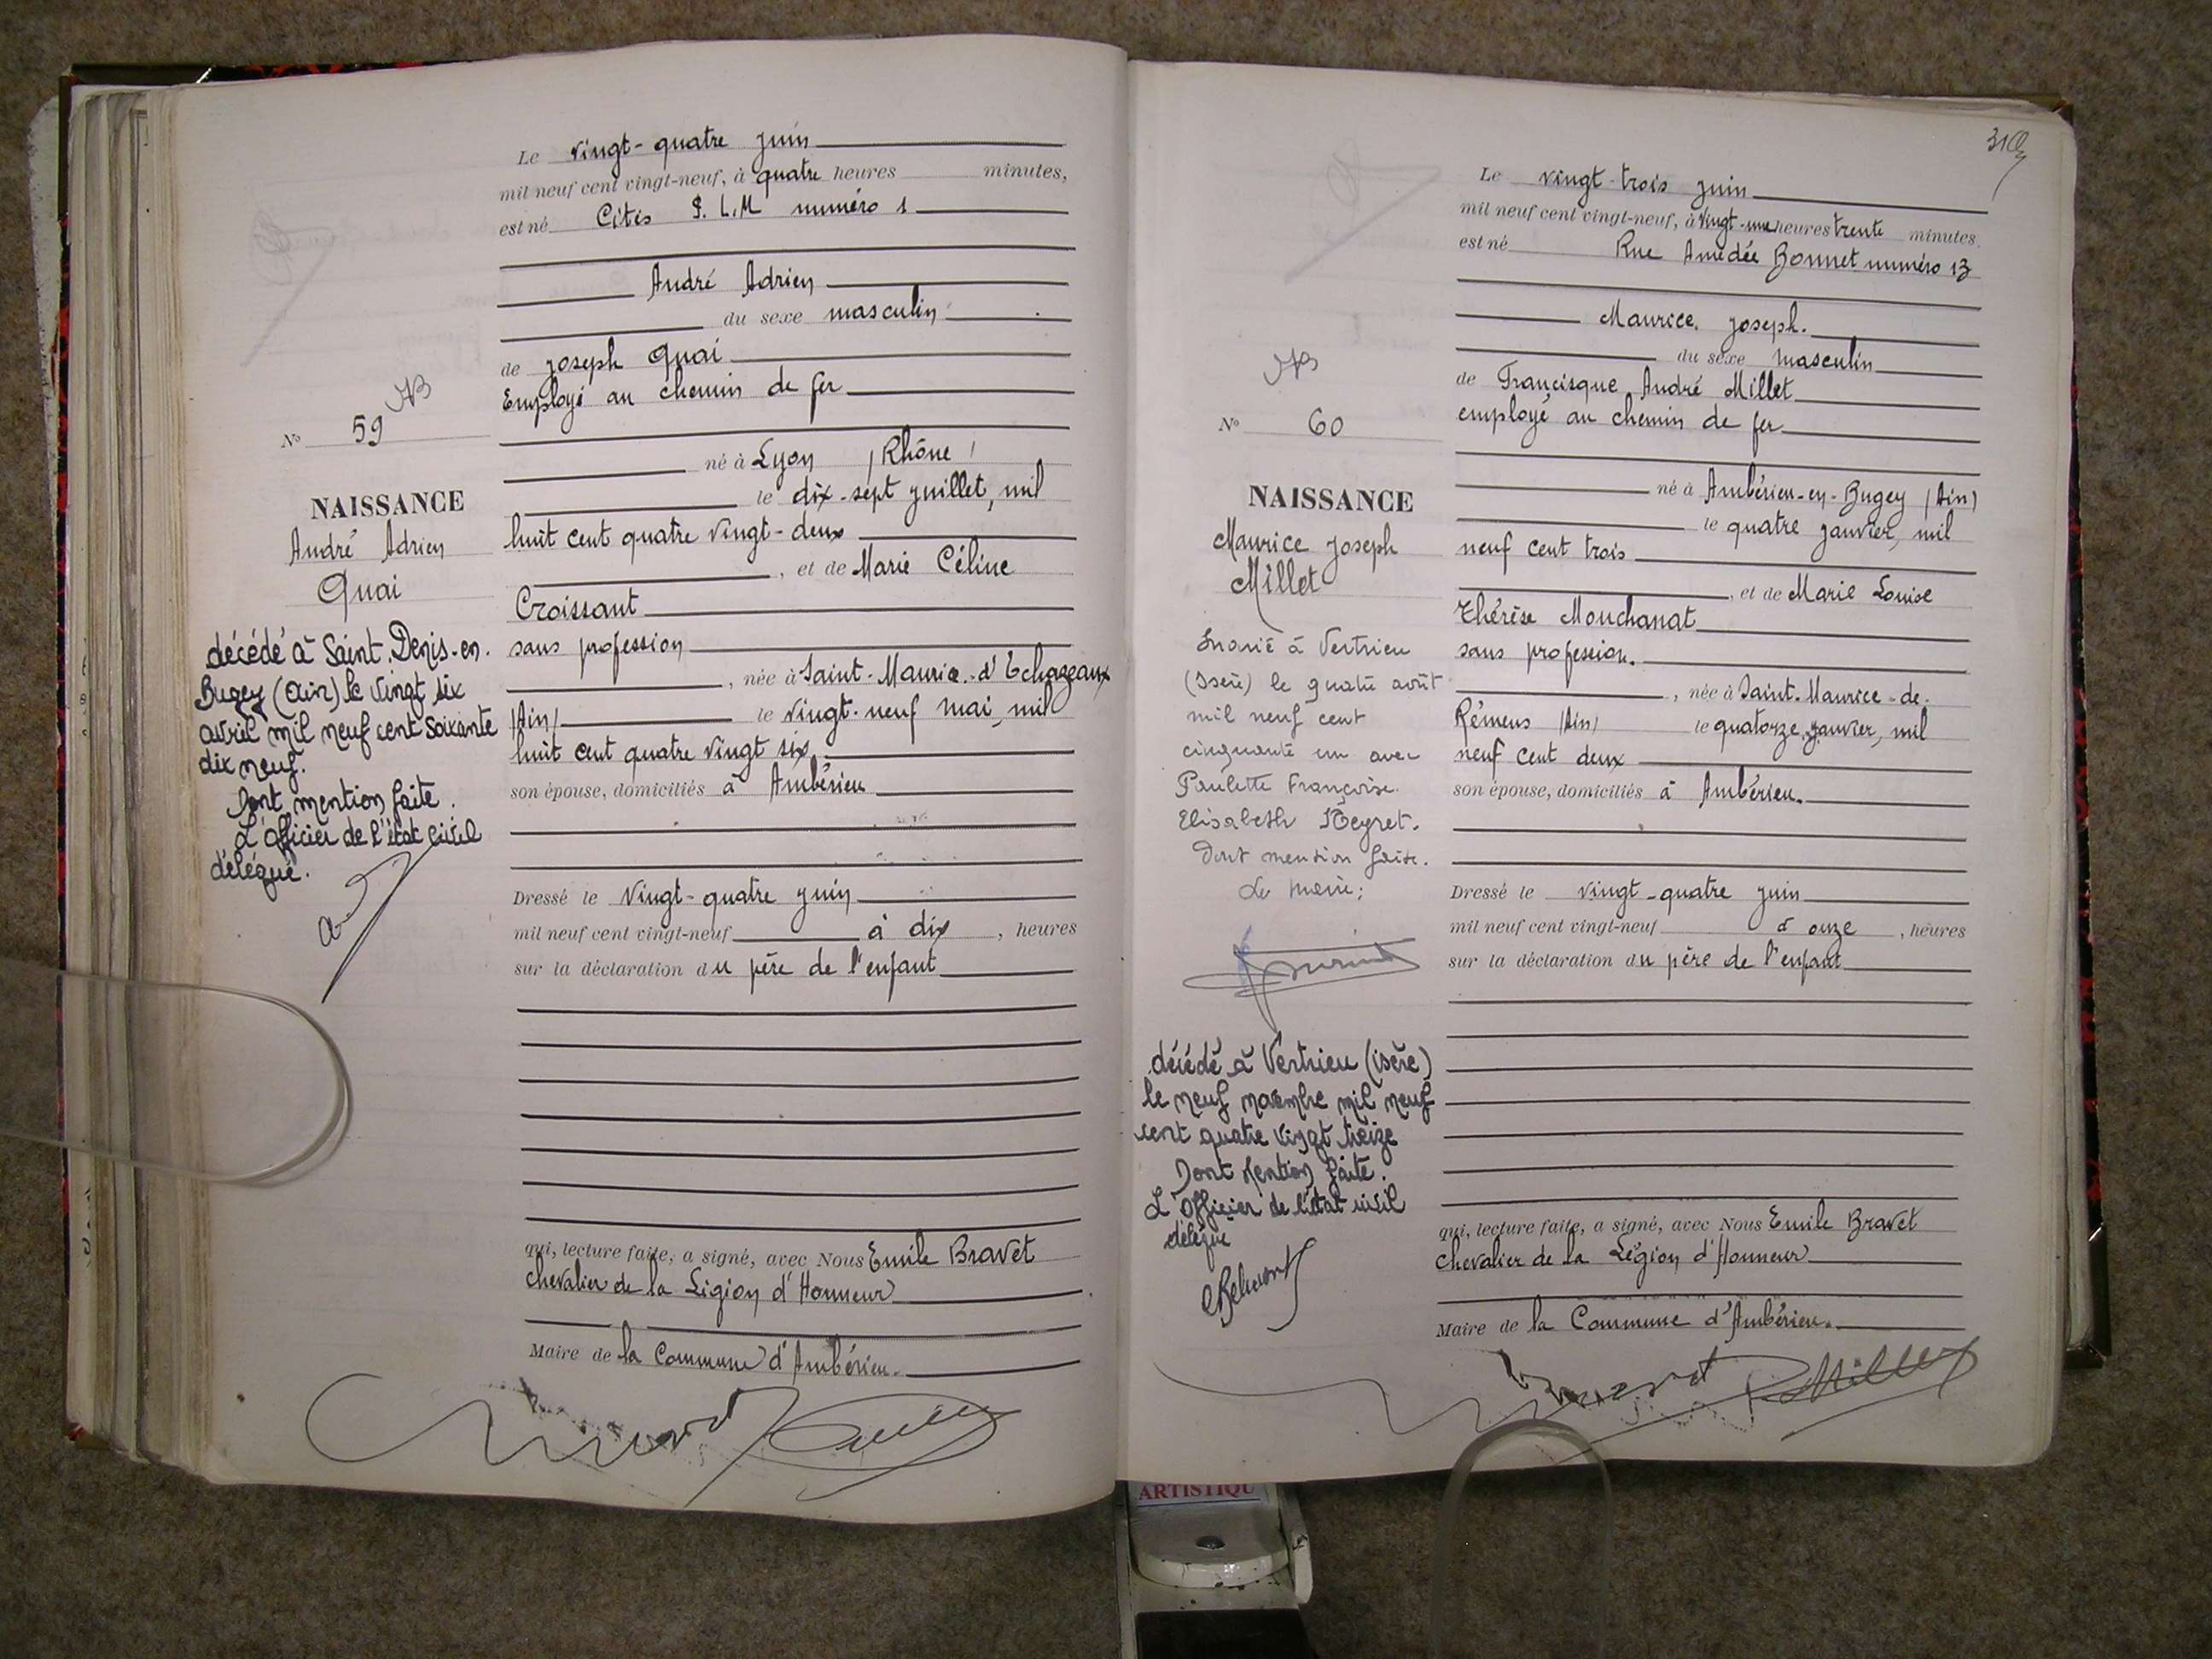 Le vingt-quatre juin
mil neuf cent vingt-neuf, à quatre heures minutes,
est né Cités P. L. M numéro 1
André Adrien
du sexe masculin
de Joseph Quai
Employé au chemin de fer
né à Lyon (Rhône)
le dix-sept juillet, mil
huit cent quatre vingt-deux
, et de Marie Céline
Croissant
sans profession
, née à Saint-Maurice-d'Echazeaux
(Ain) le vingt-neuf mai, mil
huit cent quatre vingt six,
son épouse, domiciliés à Ambérieu
Dressé le vingt-quatre juin
mil neuf cent vingt-neuf à dix , heures
sur la déclaration du père de l'enfant
qui, lecture faite, a signé, avec Nous Emile Bravet
chevalier de la Légion d'Honneur
Maire de la Commune d'Ambérieu.
No 59
NAISSANCE
André Adrien
Quai
décédé à Saint-Denis-en-
Bugey (Ain) le vingt six
avril mil neuf cent soixante
dix neuf.
Dont mention faite.
L'officier de l'état civil
délégué.
Le vingt-trois juin
mil neuf cent vingt-neuf, à vingt-une heures trente minutes,
est né Rue Amédée Bonnet numéro 13
Maurice, Joseph.
du sexe masculin
de Francisque André Millet
employé au chemin de fer
né à Ambérieu-en-Bugey (Ain)
le quatre janvier, mil
neuf cent trois
, et de Marie Louise
Thérèse Mouchanat
sans profession.
, née à Saint-Maurice-de-
Rémens (Ain) le quatorze janvier, mil
neuf cent deux
son épouse, domiciliés à Ambérieu.
Dressé le vingt-quatre juin
mil neuf cent vingt-neuf à onze , heures
sur la déclaration du père de l'enfant
qui, lecture faite, a signé, avec Nous Emile Bravet
Chevalier de la Légion d'Honneur
Maire de la Commune d'Ambérieu.
Millet
No 60
NAISSANCE
Maurice Joseph
Millet
marié à Vertrieu
(Isère) le quatre août
mil neuf cent
cinquante un avec
Paulette Françoise
Elisabeth Neyret.
Dont mention faite.
Le maire:
décédé à Vertrieu (isère)
le neuf novembre mil neuf
cent quatre vingt treize
Dont Mention faite.
L'Officier de l'état civil
délégué
ARTISTIQU